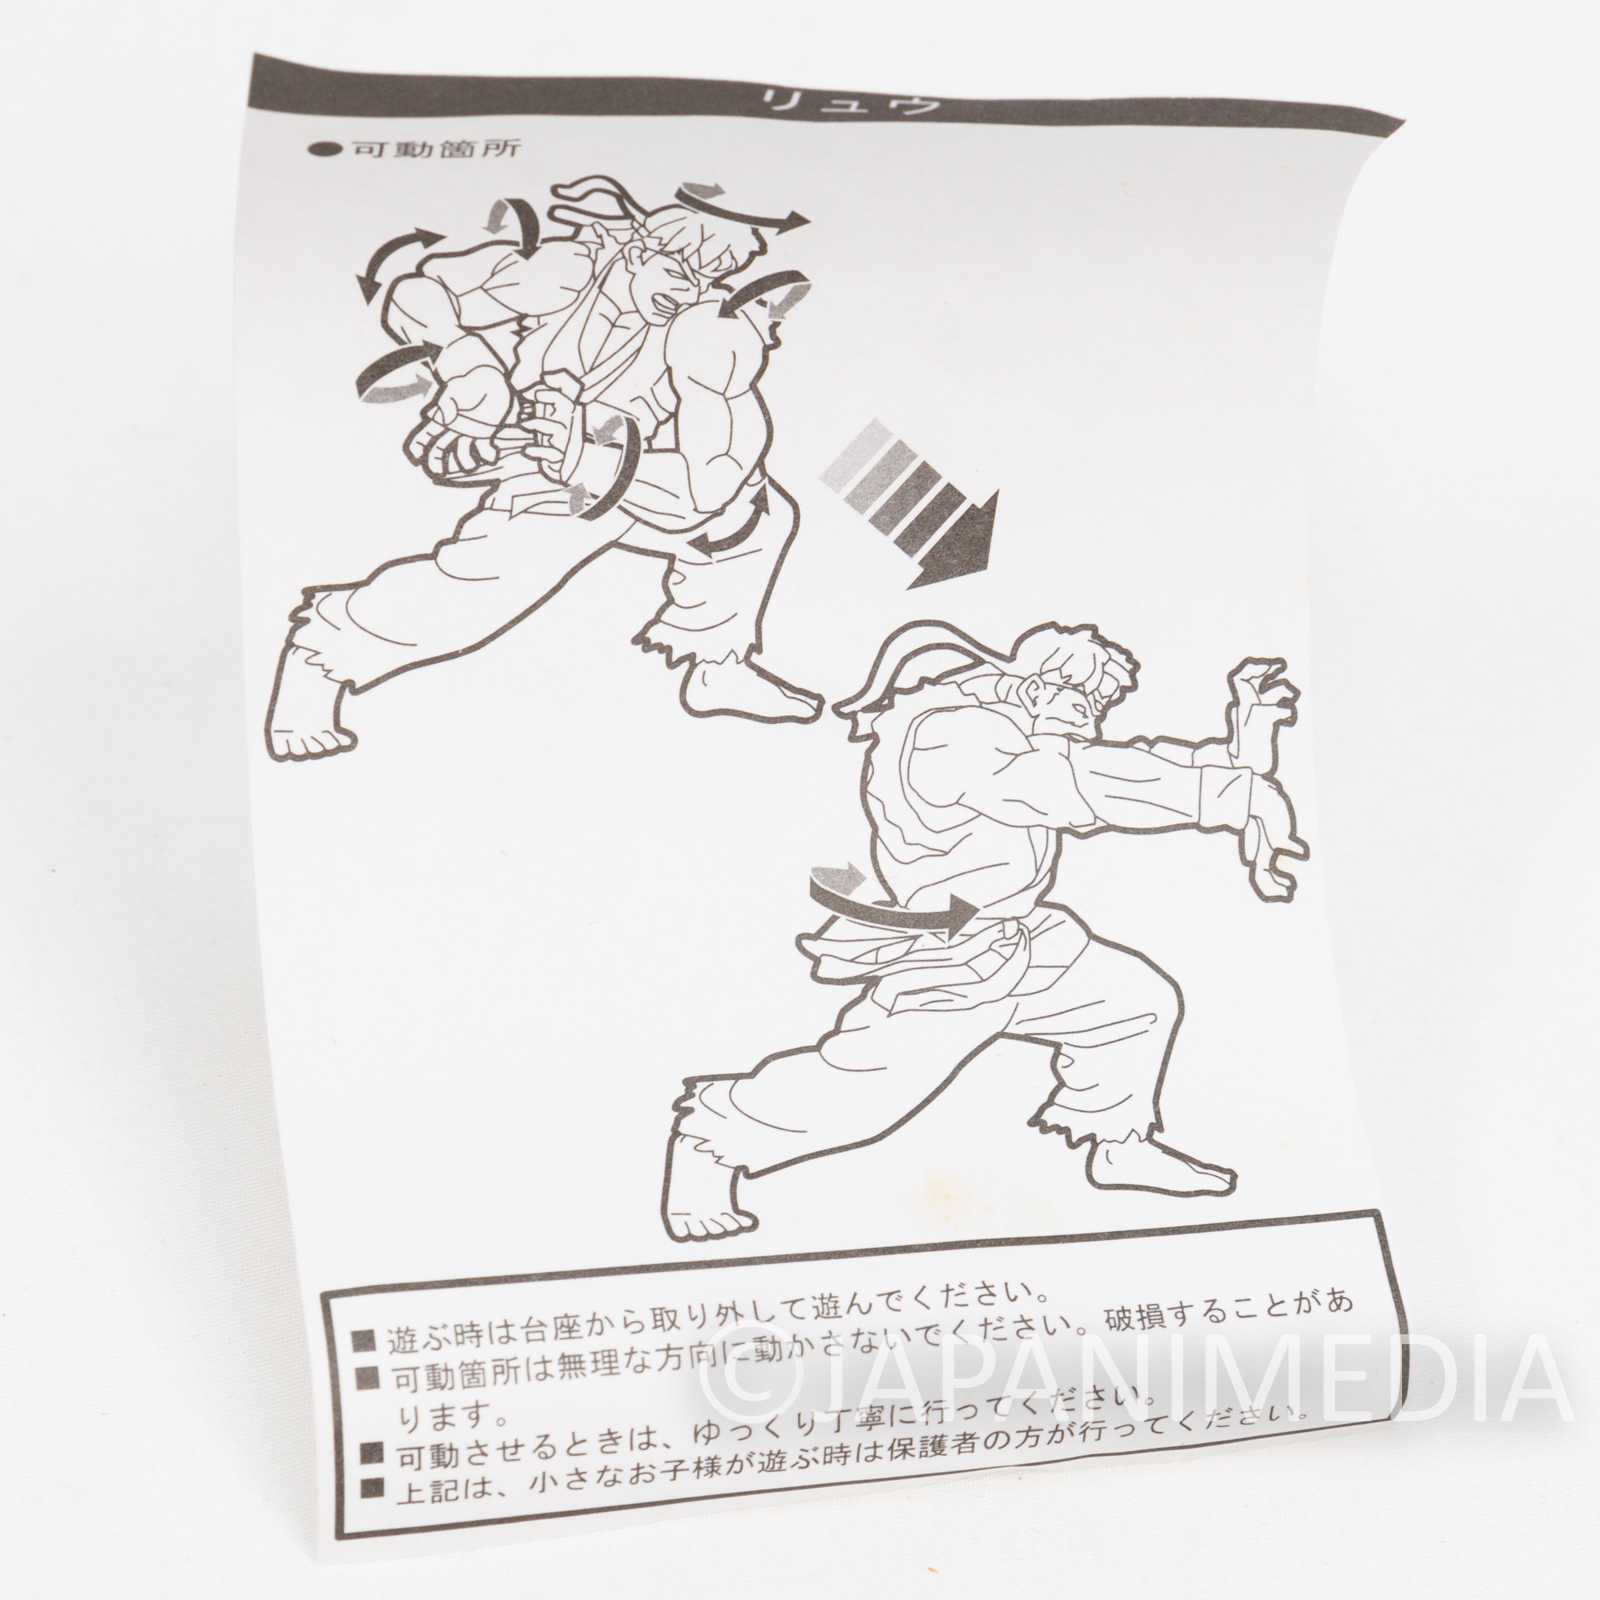 リュウ
●可動箇所
■遊ぶ時は台座から取り外して遊んでください。
■可動箇所は無理な方向に動かさないでください。破損することがあ
ります。
■可動させるときは、ゆっくり丁寧に行ってください。
■上記は、小さなお子様が遊ぶ時は保護者の方が行ってください。
©JAPANIMEDIA